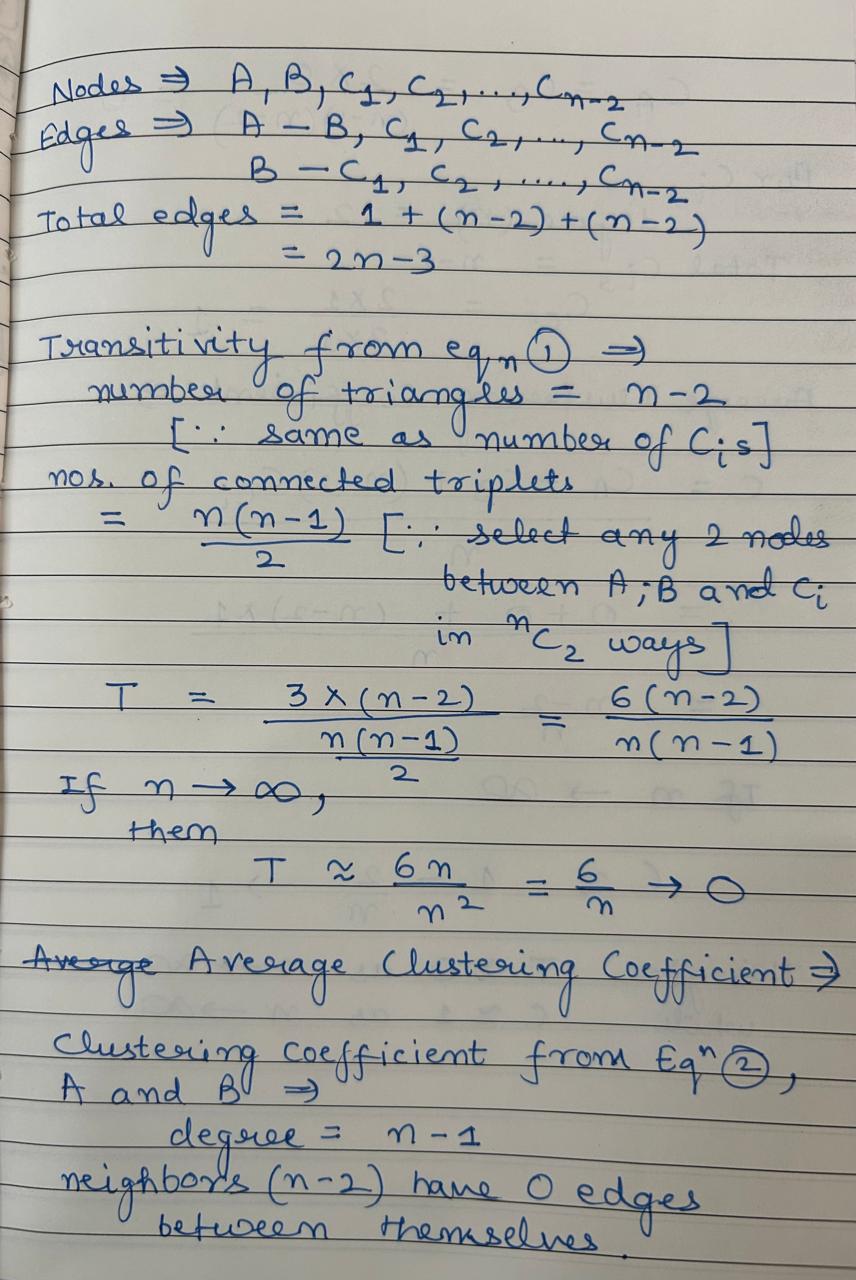 Nodes ⇒ A, B, C1, C2, ..., Cn-2
Edges ⇒ A – B, C1, C2, ..., Cn-2
B – C1, C2, ...., Cn-2
Total edges = 1 + (n-2) + (n-2)
= 2n-3
Transitivity from eqn ① ⇒
number of triangles = n-2
[∵ same as number of Cis]
nos. of connected triplets
= n(n-1)/2 [∵ select any 2 nodes
between A, B and Ci
in nC2 ways]
T = 3 × (n-2) / (n(n-1)/2) = 6(n-2) / n(n-1)
If n → ∞,
then
T ≈ 6n/n² = 6/n → 0
Averge Average Clustering Coefficient ⇒
Clustering coefficient from Eqn ②,
A and B ⇒
degree = n-1
neighbors (n-2) have 0 edges
between themselves.